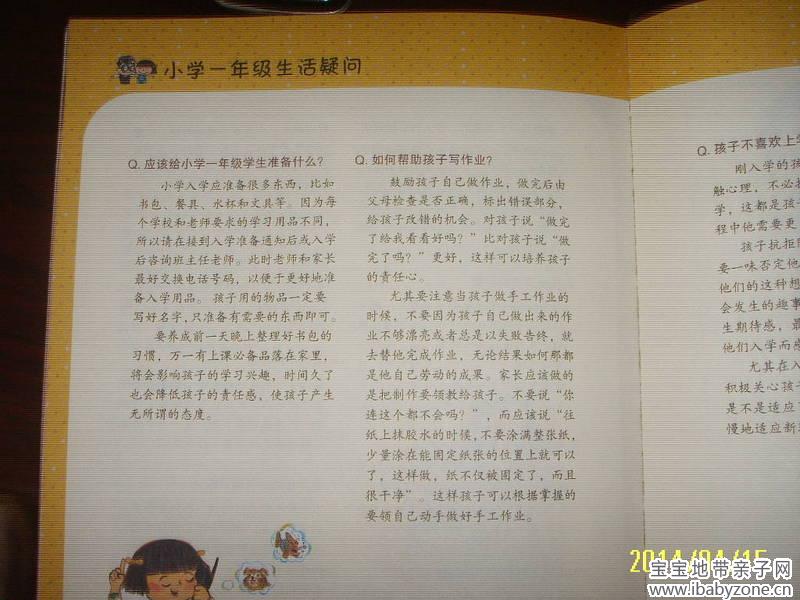 小学一年级生活疑问
Q. 应该给小学一年级学生准备什么?
小学入学应准备很多东西，比如
书包、餐具、水杯和文具等。因为每
个学校和老师要求的学习用品不同，
所以请在接到入学准备通知后或入学
后咨询班主任老师。此时老师和家长
最好交换电话号码，以便于更好地准
备入学用品。 孩子用的物品一定要
写好名字，只准备有需要的东西即可。
要养成前一天晚上整理好书包的
习惯，万一有上课必备品落在家里，
将会影响孩子的学习兴趣，时间久了
也会降低孩子的责任感，使孩子产生
无所谓的态度。
Q. 如何帮助孩子写作业?
鼓励孩子自己做作业，做完后由
父母检查是否正确，标出错误部分，
给孩子改错的机会。对孩子说“做完
了给我看看好吗？”比对孩子说“做
完了吗？”更好，这样可以培养孩子
的责任心。
尤其要注意当孩子做手工作业的
时候，不要因为孩子自己做出来的作
业不够漂亮或者总是以失败告终，就
去替他完成作业，无论结果如何那都
是他自己劳动的成果。家长应该做的
是把制作要领教给孩子。不要说“你
连这个都不会吗？”，而应该说“往
纸上抹胶水的时候，不要涂满整张纸，
少量涂在能固定纸张的位置上就可以
了，这样做，纸不仅被固定了，而且
很干净”。这样孩子可以根据掌握的
要领自己动手做好手工作业。
Q. 孩子不喜欢上学
刚入学的孩
触心理，不必担
学，这都是孩子
程中他需要更
孩子抗拒
要一味否定他
他们的这种想
会发生的趣事
生期待感，最
他们入学而感
尤其在入
积极关心孩子
是不是适应了
慢地适应新
2014/04/15
宝宝地带亲子网
www.ibabyzone.cn